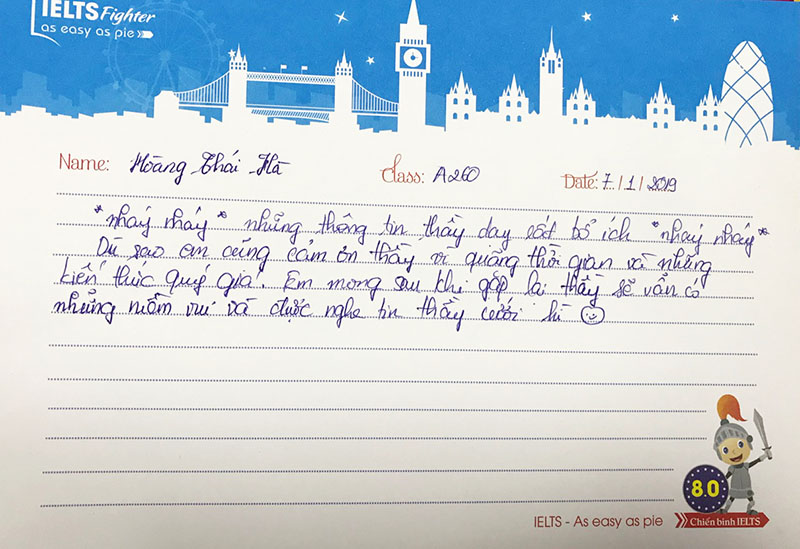 IELTS Fighter
as easy as pie
Name: Hoàng Thái Hà Class: A260 Date: 7/1/2019
*nháy nháy* những thông tin thầy dạy rất bổ ích *nháy nháy*
Dù sao em cũng cảm ơn thầy vì quãng thời gian và những
kiến thức quý giá. Em mong sau khi gặp lại thầy sẽ vẫn có
những niềm vui và được nghe tin thầy cưới hì
8.0
IELTS - As easy as pie Chiến binh IELTS